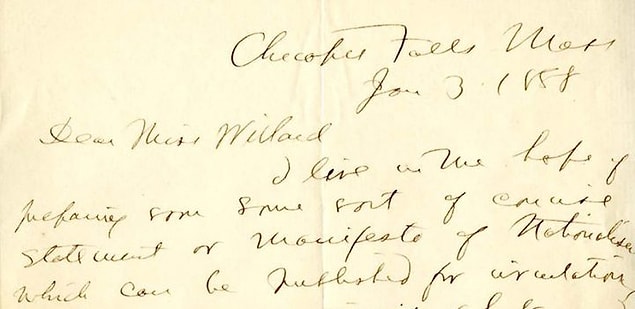 Chicopee Falls Mass
Jan 3. 1888
Dear Miss Willard
I live in the hope of
preparing soon some sort of concise
statement or manifesto of Nationalism
which can be published for circulation